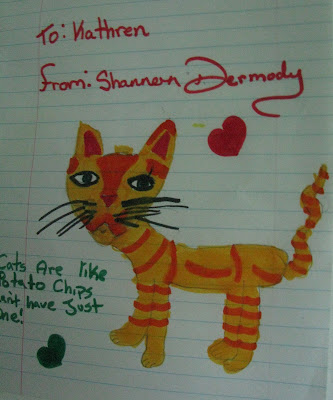 To: Kathren
From: Shannern Dermody
Cats Are like
Potato Chips
can't have Just
One!